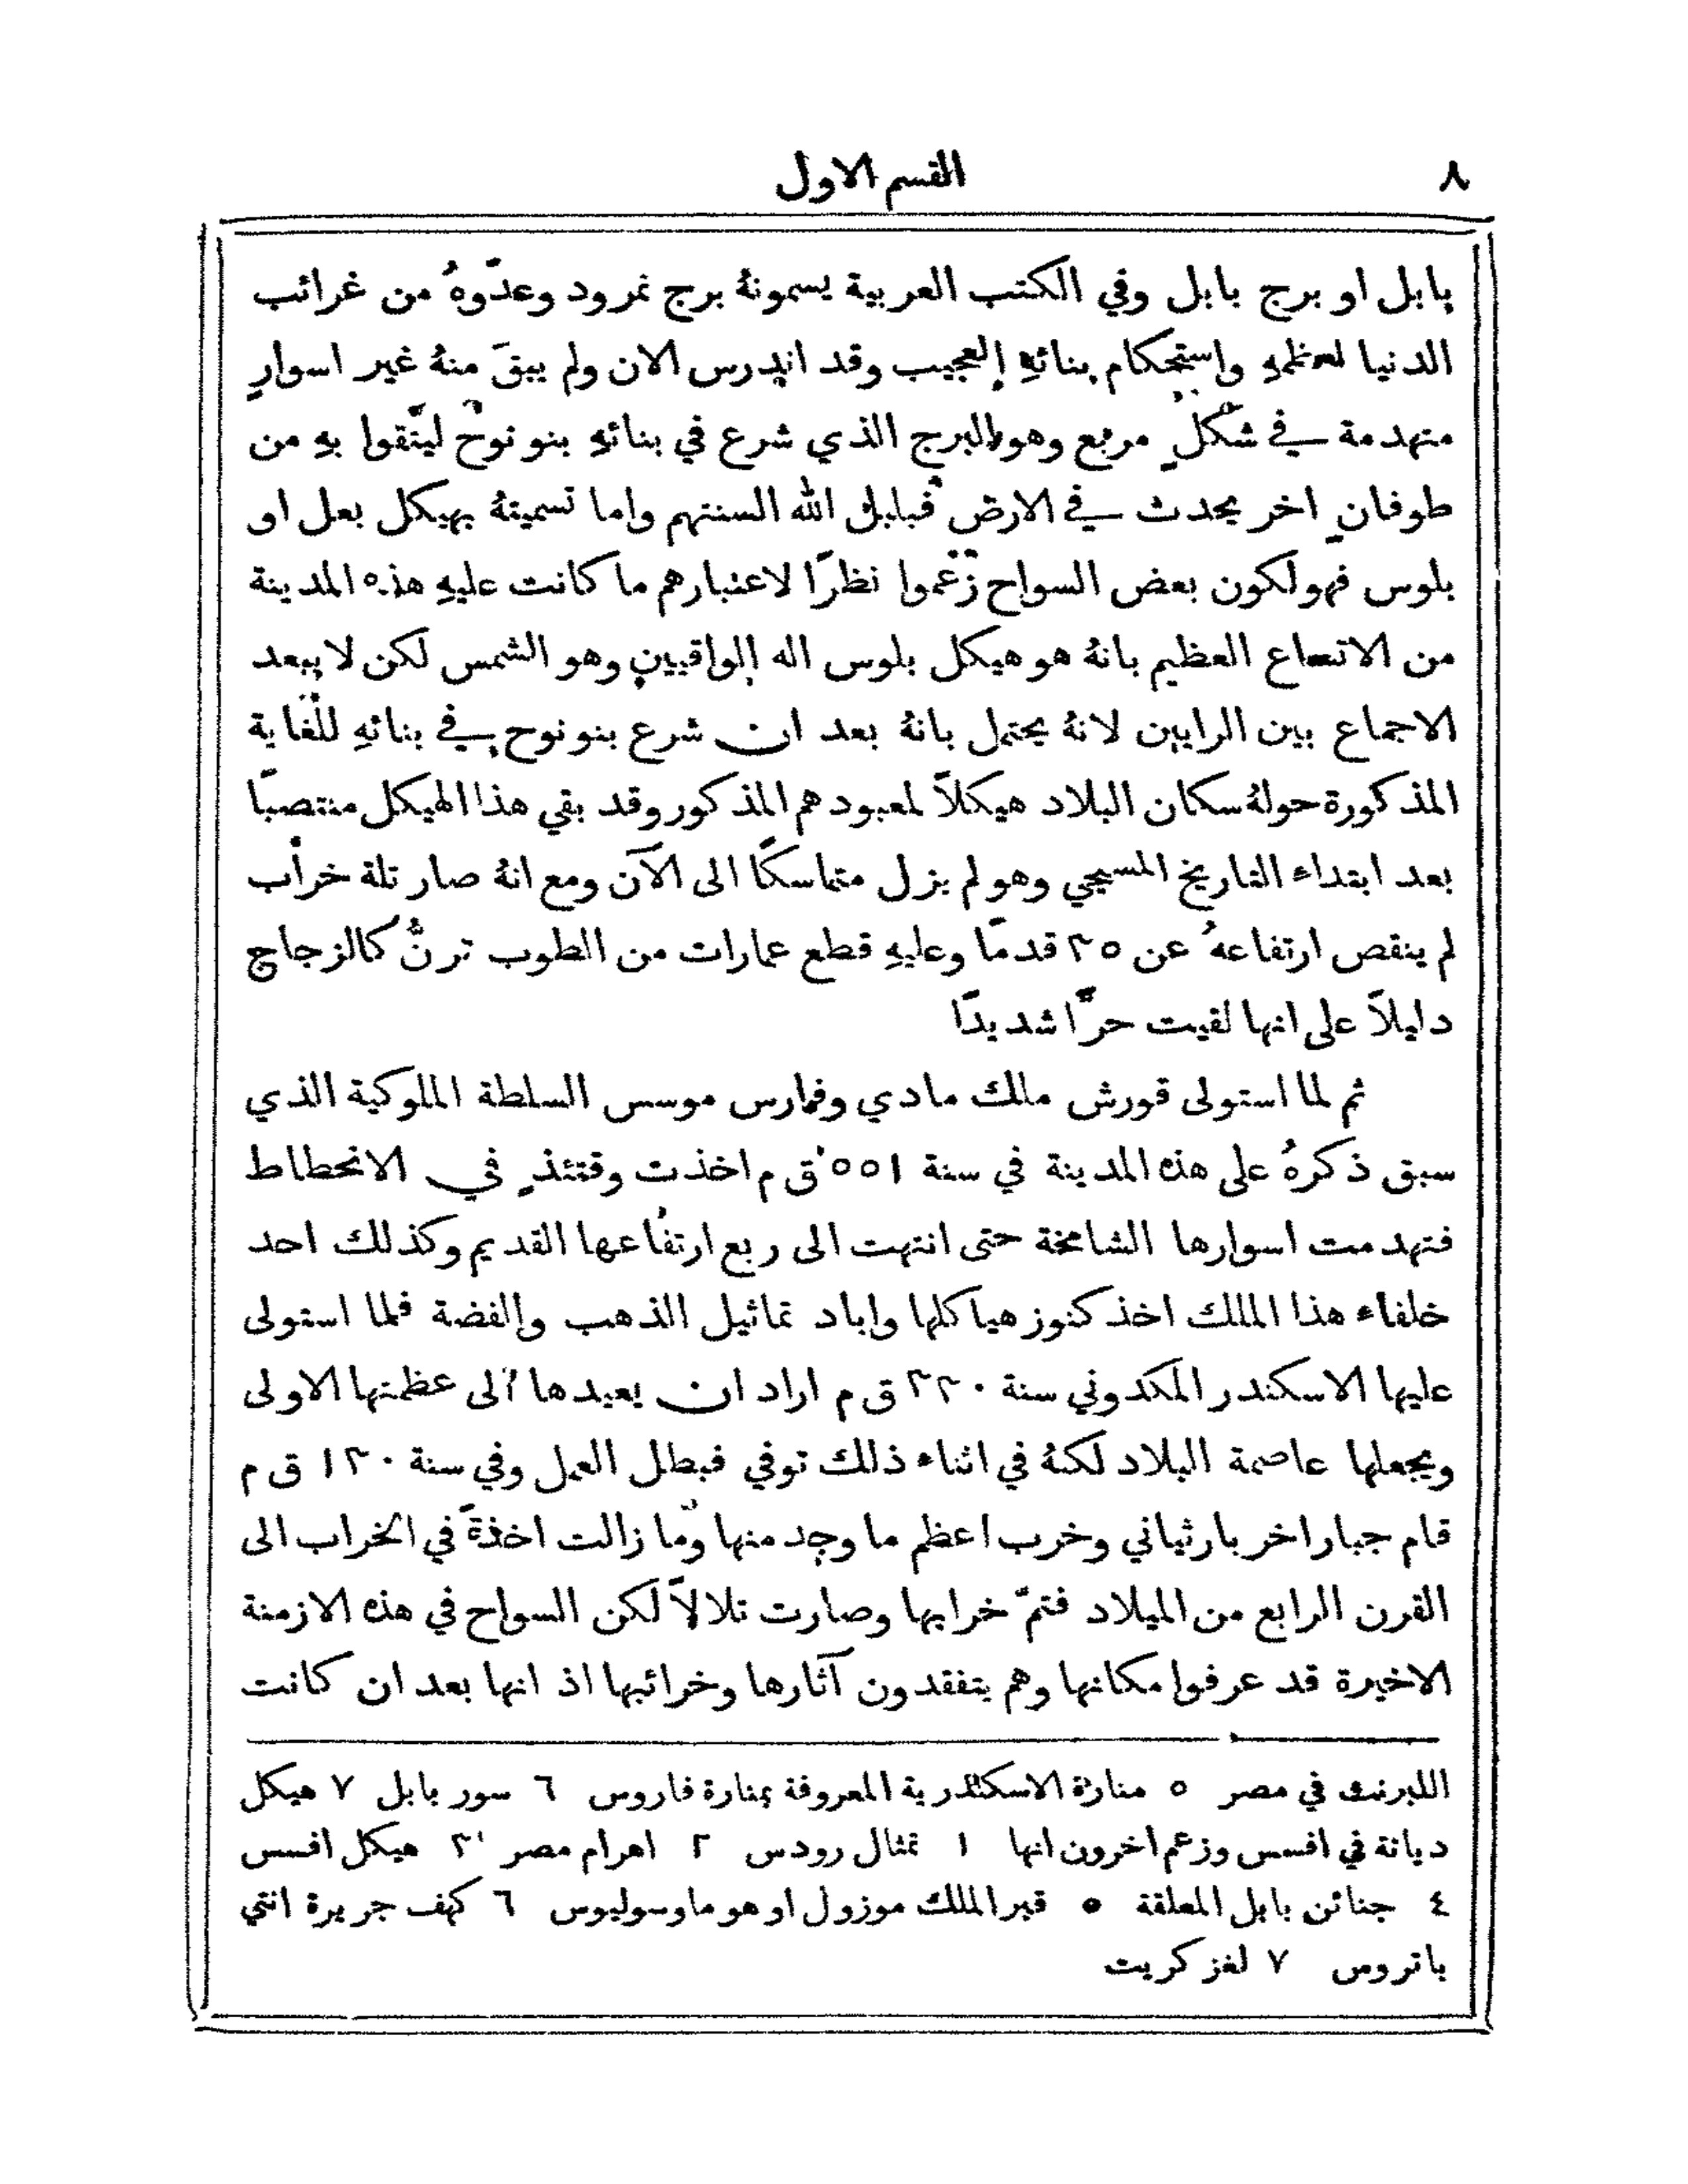 ٨
القسم الاول
بابل او برج بابل وفي الكتب العربية يسمونهُ برج نمرود وعدّوهُ من غرائب
الدنيا لعظمهِ واستحكام بنائهِ العجيب وقد اندرس الان ولم يبقَ منهُ غير اسوارٍ
متهدمة في شكلٍ مربع وهو البرج الذي شرع في بنائهِ بنو نوح ليتّقوا بهِ من
طوفانٍ اخر يحدث في الارض فبلبل الله السنتهم واما تسميتهُ بهيكل بعل او
بلوس فهو لكون بعض السواح زعموا نظرًا لاعتبارهم ما كانت عليهِ هذه المدينة
من الاتساع العظيم بانهُ هو هيكل بلوس اله الواقيين وهو الشمس لكن لا يبعد
الاجماع بين الرايين لانهُ يحتمل بانهُ بعد ان شرع بنو نوح في بنائهِ للغاية
المذكورة حولهُ سكان البلاد هيكلاً لمعبودهم المذكور وقد بقي هذا الهيكل منتصبًا
بعد ابتداء التاريخ المسيحي وهو لم يزل متماسكًا الى الآن ومع انهُ صار تلة خراب
لم ينقص ارتفاعهُ عن ٢٥ قدمًا وعليهِ قطع عمارات من الطوب ترنُّ كالزجاج
دليلاً على انها لقيت حرًّا شديدًا
ثم لما استولى قورش ملك مادي وفارس موسس السلطة الملوكية الذي
سبق ذكرهُ على هذه المدينة في سنة ٥٥١ ق م اخذت وقتئذٍ في الانحطاط
فتهدمت اسوارها الشامخة حتى انتهت الى ربع ارتفاعها القديم وكذلك احد
خلفاء هذا الملك اخذ كنوز هياكلها واباد تماثيل الذهب والفضة فلما استولى
عليها الاسكندر المكدوني سنة ٣٣٠ ق م اراد ان يعيدها الى عظمتها الاولى
ويجعلها عاصمة البلاد لكنهُ في اثناء ذلك توفي فبطل العمل وفي سنة ١٣٠ ق م
قام جبار اخر بارثياني وخرب اعظم ما وجد منها وما زالت اخذةً في الخراب الى
القرن الرابع من الميلاد فتمّ خرابها وصارت تلالاً لكن السواح في هذه الازمنة
الاخيرة قد عرفوا مكانها وهم يتفقدون آثارها وخرائبها اذ انها بعد ان كانت
اللبرنث في مصر ٥ منارة الاسكندرية المعروفة بمنارة فاروس ٦ سور بابل ٧ هيكل
ديانة في افسس وزعم اخرون انها ١ تمثال رودس ٢ اهرام مصر ٣ هيكل افسس
٤ جنائن بابل المعلقة ٥ قبر الملك موزول او هو ماوسوليوس ٦ كهف جريرة انتي
باتروس ٧ لغز كريت